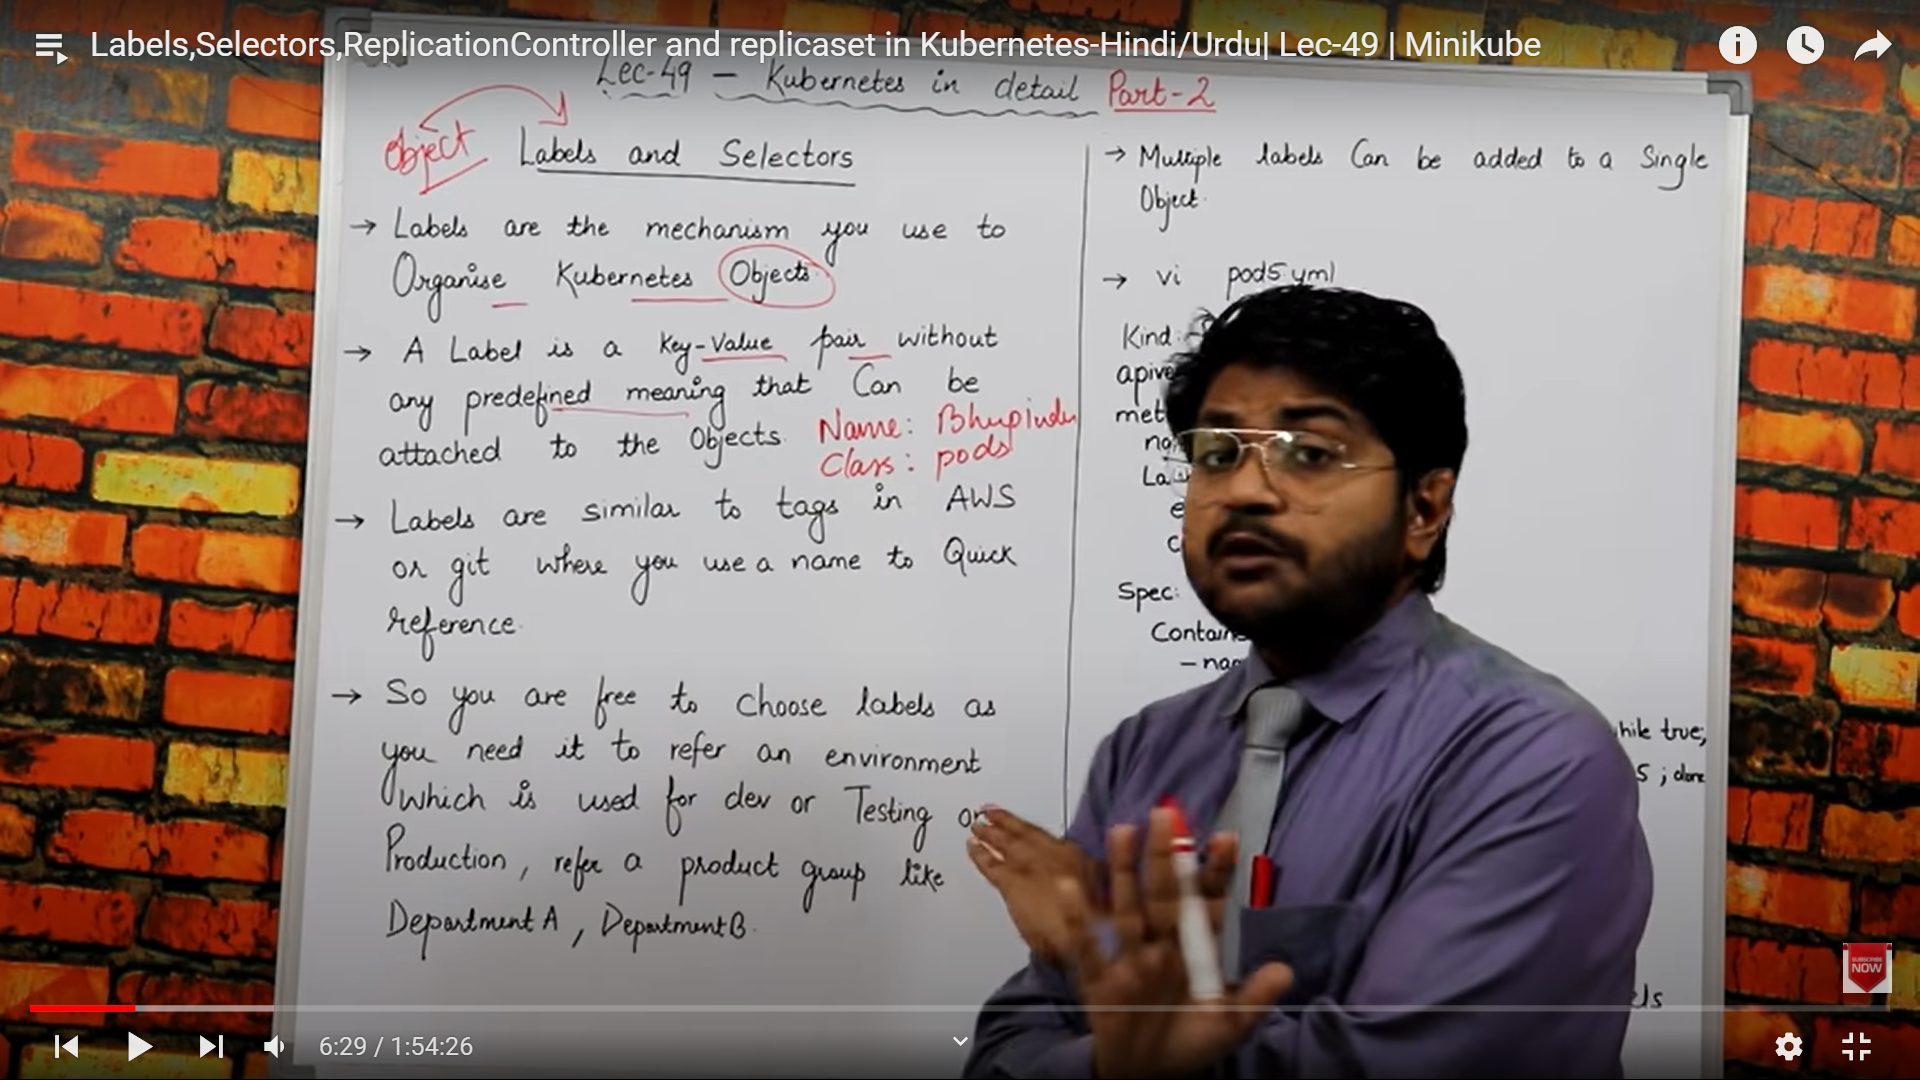 Labels,Selectors,ReplicationController and replicaset in Kubernetes-Hindi/Urdu| Lec-49 | Minikube
Lec-49 – Kubernetes in detail Part-2
Object Labels and Selectors
→ Labels are the mechanism you use to
Organise Kubernetes Objects.
→ A Label is a Key-Value pair without
any predefined meaning that Can be
attached to the Objects.
Name: Bhupinder
Class: pods
→ Labels are similar to tags in AWS
or git where you use a name to Quick
reference.
→ So you are free to choose labels as
you need it to refer an environment
which is used for dev or Testing or
Production, refer a product group like
Department A, Department B.
→ Multiple labels Can be added to a Single
Object.
→ vi pod5.yml
Kind:
Spec:
while true;
5 ; done
SUBSCRIBE
NOW
6:29 / 1:54:26